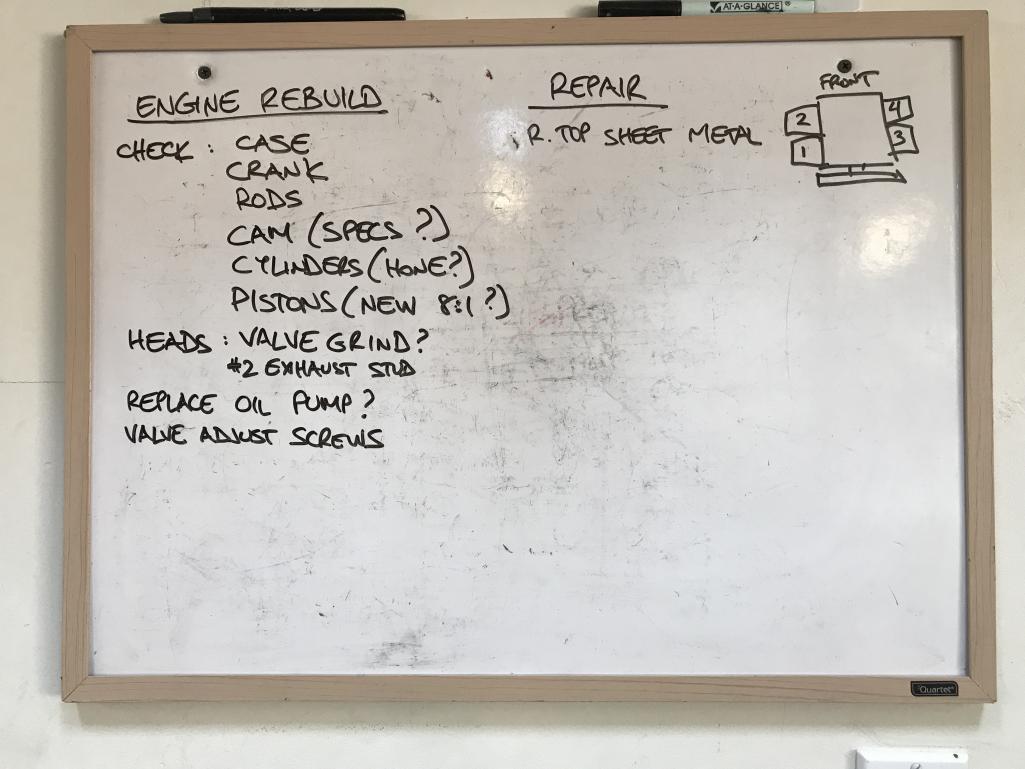 AT-A-GLANCE®
ENGINE REBUILD
CHECK : CASE
CRANK
RODS
CAM (SPECS ?)
CYLINDERS (HONE?)
PISTONS (NEW 8:1 ?)
HEADS : VALVE GRIND?
#2 EXHAUST STUD
REPLACE OIL PUMP ?
VALVE ADJUST SCREWS
REPAIR
R. TOP SHEET METAL
FRONT
2 4
1 3
Quartet®